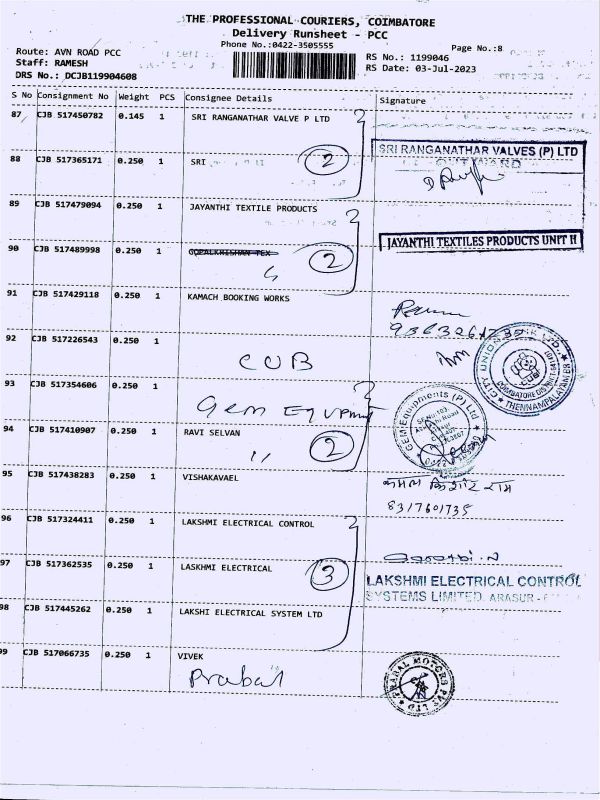 THE PROFESSIONAL COURIERS, COIMBATORE
Delivery Runsheet - PCC
Phone No.:0422-3505555
Page No.:8
Route: AVN ROAD PCC
RS No.: 1199046
Staff: RAMESH
RS Date: 03-Jul-2023
DRS No.: DCJB119904608
S No Consignment No Weight PCS Consignee Details Signature
87 CJB 517450782 0.145 1 SRI RANGANATHAR VALVE P LTD
SRI RANGANATHAR VALVES (P) LTD
88 CJB 517365171 0.250 1 SRI 2
89 CJB 517479094 0.250 1 JAYANTHI TEXTILE PRODUCTS
JAYANTHI TEXTILES PRODUCTS UNIT II
90 CJB 517489998 0.250 1 GOPALKRISHAN TEX 2
91 CJB 517429118 0.250 1 KAMACH BOOKING WORKS
92 CJB 517226543 0.250 1
CUB
CITY UNION BANK LTD.
CUB
COIMBATORE DISTRICT
THENNAMPALAYAM BR
93 CJB 517354606 0.250 1
Gem Equpment
GEM Equipments (P) Ltd
94 CJB 517410907 0.250 1 RAVI SELVAN 2
"
95 CJB 517438283 0.250 1 VISHAKAVAEL
8317601735
96 CJB 517324411 0.250 1 LAKSHMI ELECTRICAL CONTROL
97 CJB 517362535 0.250 1 LASKHMI ELECTRICAL 3
LAKSHMI ELECTRICAL CONTROL
SYSTEMS LIMITED. ARASUR -
98 CJB 517445262 0.250 1 LAKSHI ELECTRICAL SYSTEM LTD
99 CJB 517066735 0.250 1 VIVEK
Prabal
PRABAL MOTORS PVT LTD